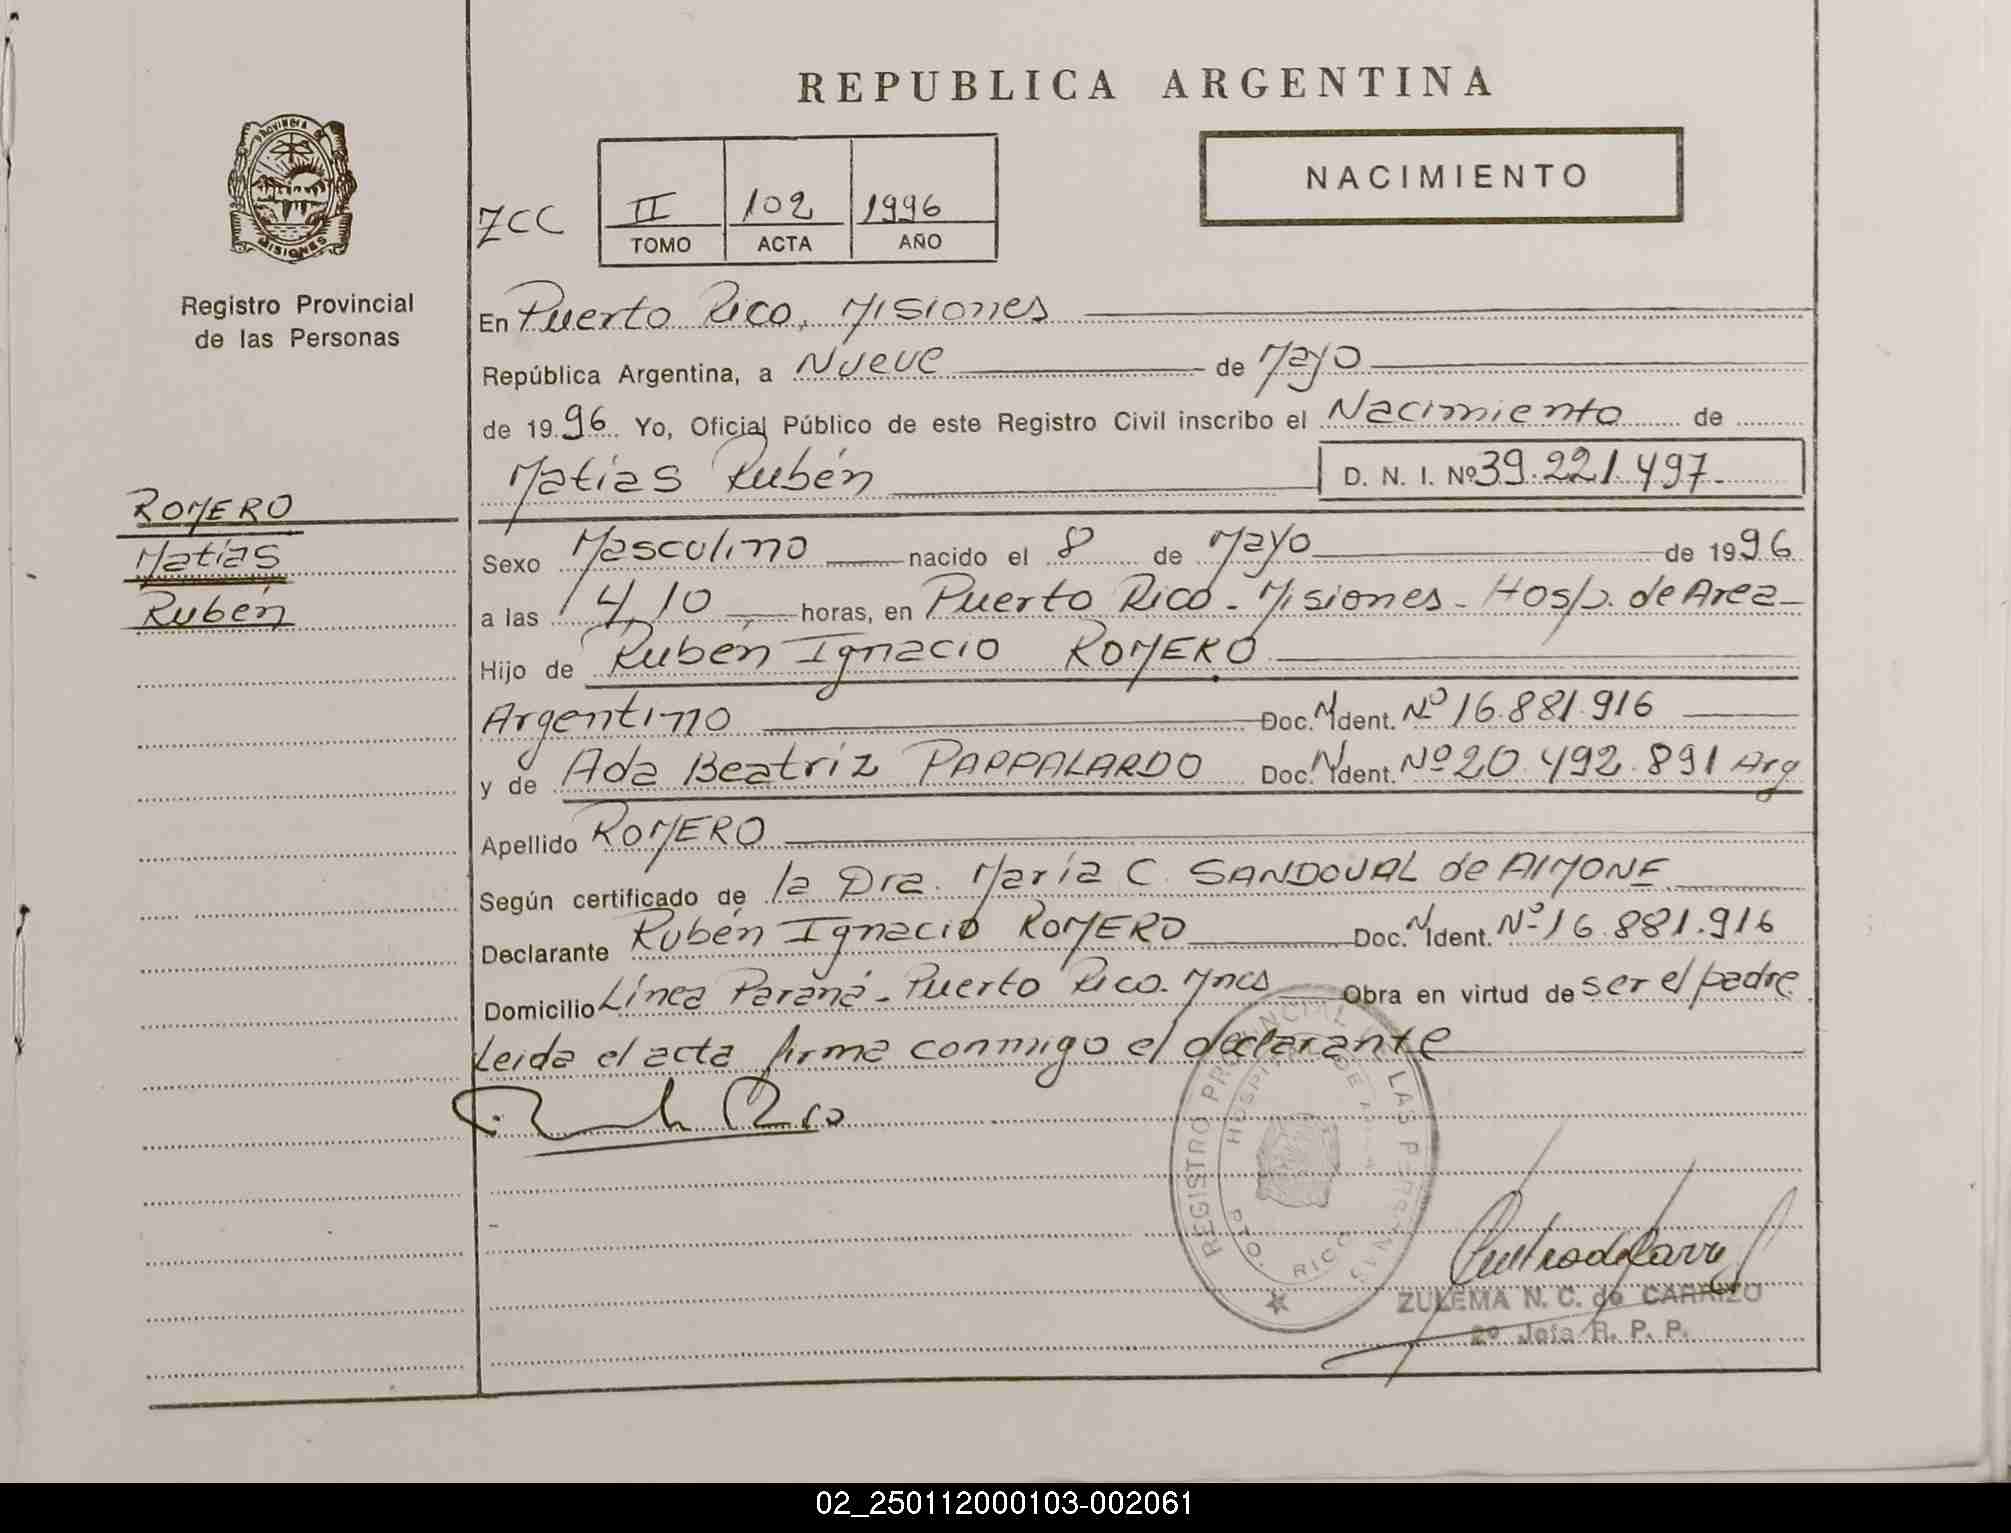 REPUBLICA ARGENTINA
PROVINCIA DE
MISIONES
Registro Provincial
de las Personas
NACIMIENTO
ZCC
II 102 1996
TOMO ACTA AÑO
En Puerto Rico, Misiones
República Argentina, a Nueve de Mayo
de 1996. Yo, Oficial Público de este Registro Civil inscribo el Nacimiento de
Matías Rubén D. N. I. Nº 39.221.497
ROMERO
Matías
Rubén
Sexo Masculino nacido el 8 de Mayo de 1996
a las 14,10 horas, en Puerto Rico - Misiones - Hosp. de Area
Hijo de Rubén Ignacio ROMERO
Argentino Doc. N Ident. Nº 16.881.916
y de Ada Beatríz PAPPALARDO Doc. N Ident. Nº 20.492.891 Arg
Apellido ROMERO
Según certificado de la Dra. María C. SANDOVAL de AIMONE
Declarante Rubén Ignacio ROMERO Doc. N Ident. Nº 16.881.916
Domicilio Línea Paraná - Puerto Rico. Mnes Obra en virtud de ser el padre
Leida el acta firma conmigo el declarante
REGISTRO PROVINCIAL DE LAS PERSONAS
HOSPITAL DE AREA
PTO. RICO
ZULEMA N. C. de CARRIZO
2º Jefa R. P. P.
02_250112000103-002061